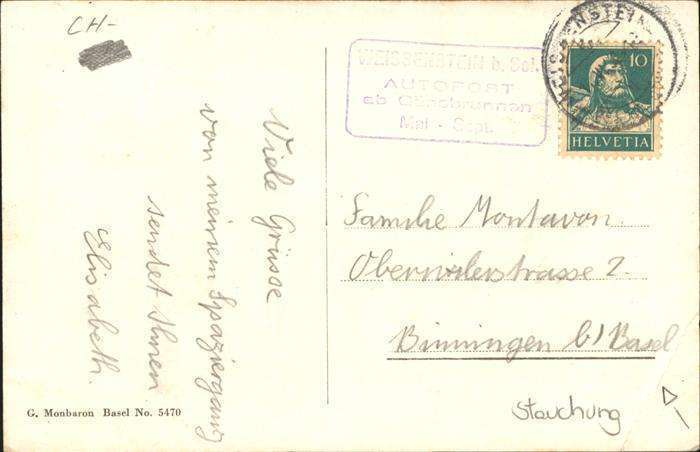 CH-
WEISSENSTEIN b. Sol.
AUTOPOST
ab Gänsbrunnen
Mai - Sept.
10
HELVETIA
Viele Grüsse
von meinem Spaziergang
sendet Ihnen
Elisabeth.
Familie Montavon.
Oberwilerstrasse 2.
Binningen b/Basel
G. Monbaron Basel No. 5470
Stauchung